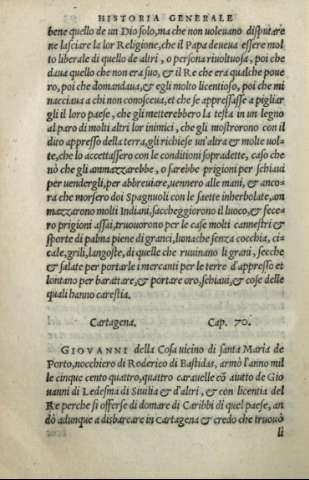 HISTORIA GENERALE
bene quello de un Dio solo, ma che non uoleuano disputare
ne lasciare la lor Religione, che il Papa deueua essere mol
to liberale di quello de altri, o persona riuoltuosa, poi che
daua quello che non era suo, & il Re che era qualche poue
ro, poi che domandaua, & egli molto licentioso, poi che mi
nacciaua a chi non conosceua, et che se appressasse a pigliar
gli il loro paese, che gli metterebbero la testa in un legno
al paro di molti altri lor inimici, che gli mostrorono con il
dito appresso della terra, gli richiese un'altra & molte uol=
te, che lo accettassero con le conditioni sopradette, caso che
nò che gli ammazzarebbe, o sarebbe prigioni per schiaui
per uendergli, per abbreuiare, uennero alle mani, & anco=
ra che morsero doi Spagnuoli con le saette inherbolate, am
mazzorono molti Indiani, saccheggiorono il luoco, & fece=
ro prigioni assai, truouorono per le case molti cannestri &
sporte di palma piene di granci, lumache senza cocchia, ci=
cale, grili, langoste, di quelle che ruuinano li grani, secche
& salate per portarle i mercanti per le terre d'appresso et
lontano per barattare, & portare oro, schiaui, & cose delle
quali hanno carestia.
Cartagena. Cap. 70.
GIOVANNI della Cosa uicino di santa Maria de
Porto, nocchiero di Roderico di Bastidas, armò l'anno mil
le cinque cento quattro, quattro carauelle cō aiuto de Gio
uanni di Ledesma di Siuilia & d'altri, & con licentia del
Re perche si offerse di domare di Caribbi di quel paese, an
dò adunque a disbarcare in Cartagena & credo che truouò
li